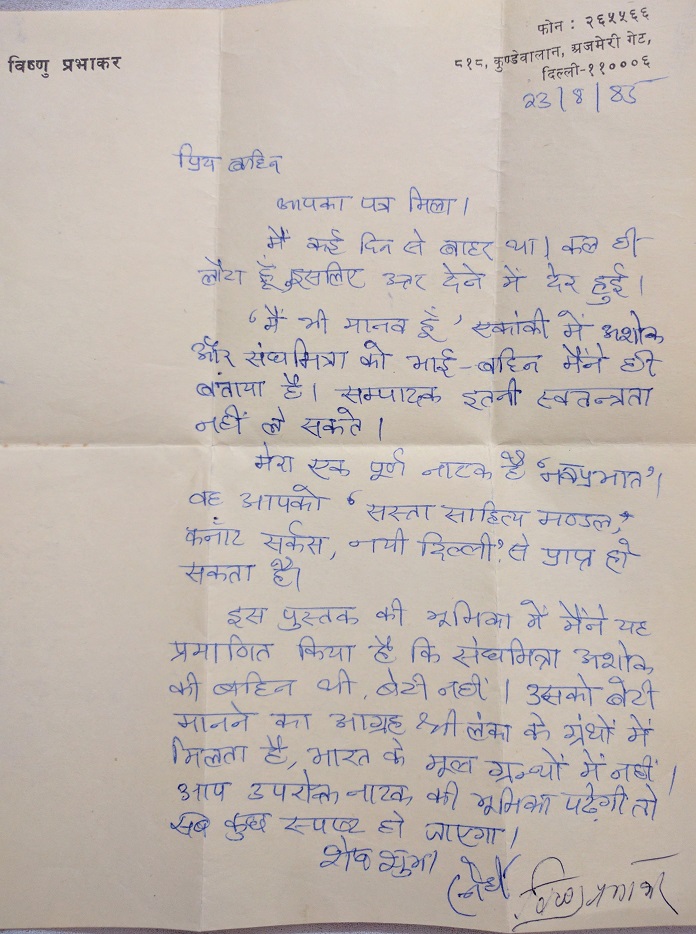 विष्णु प्रभाकर
फोन : २६५५६६
८१८, कुण्डेवालान, अजमेरी गेट,
दिल्ली-११०००६
23/8/85
प्रिय बहिन
आपका पत्र मिला।
मैं कई दिन से बाहर था। कल ही
लौटा हूँ इसलिए उत्तर देने में देर हुई।
'मैं भी मानव हूँ' एकांकी में अशोक
और संघमित्रा को भाई-बहिन मैंने ही
बताया है। सम्पादक इतनी स्वतन्त्रता
नहीं ले सकते।
मेरा एक पूर्ण नाटक है 'नवप्रभात'।
वह आपको 'सस्ता साहित्य मण्डल,
कनॉट सर्कस, नयी दिल्ली' से प्राप्त हो
सकता है।
इस पुस्तक की भूमिका में मैंने यह
प्रमाणित किया है कि संघमित्रा अशोक
की बहिन थी, बेटी नहीं। उसको बेटी
मानने का आग्रह श्री लंका के ग्रंथों में
मिलता है, भारत के मूल ग्रन्थों में नहीं।
आप उपरोक्त नाटक की भूमिका पढ़ेगी तो
सब कुछ स्पष्ट हो जाएगा।
शेष शुभ।
विष्णु प्रभाकर